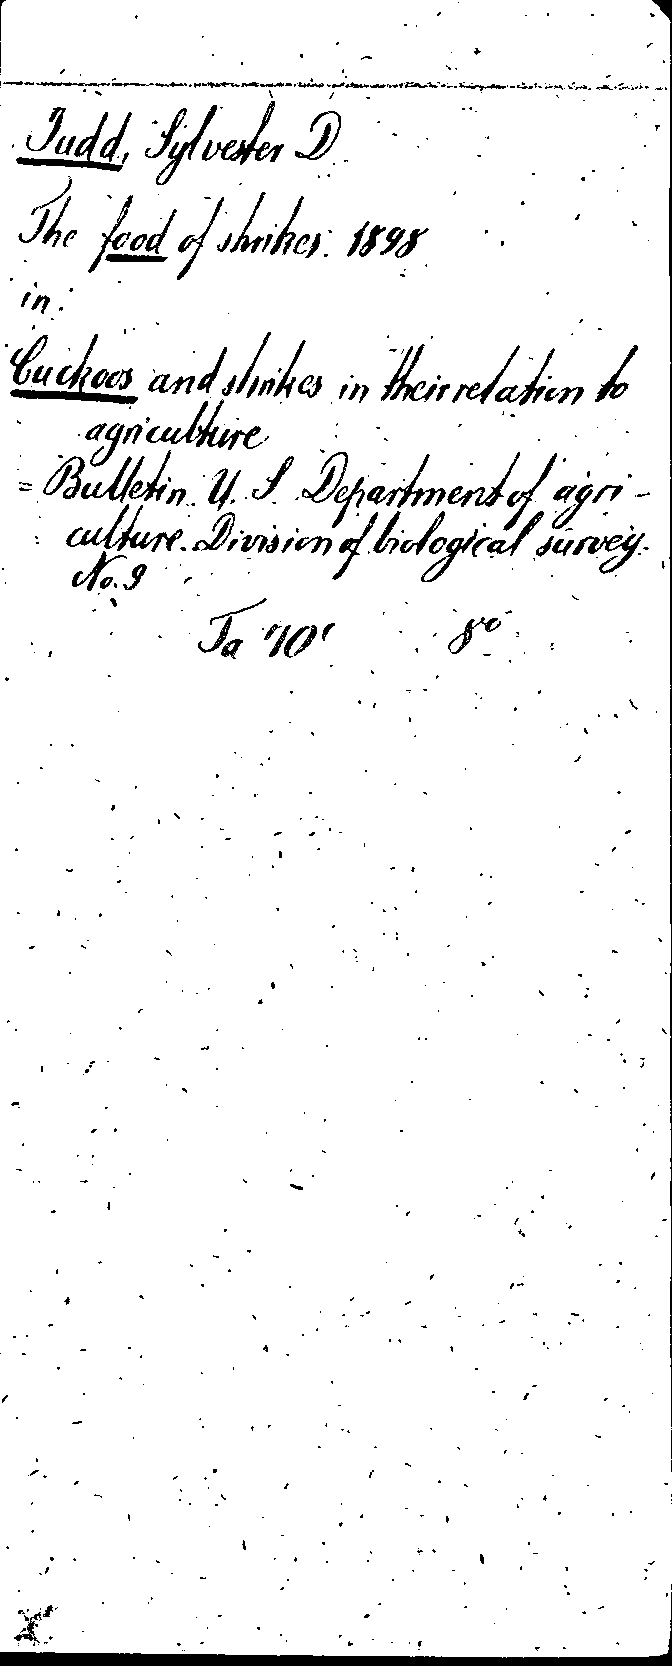 Judd, Sylvester D
The food of shrikes. 1898
in:
Cuckoos and shrikes in their relation to
agriculture
= Bulletin. U. S. Department of agri-
culture. Division of biological survey.
No. 9
Ta 70' 8vo